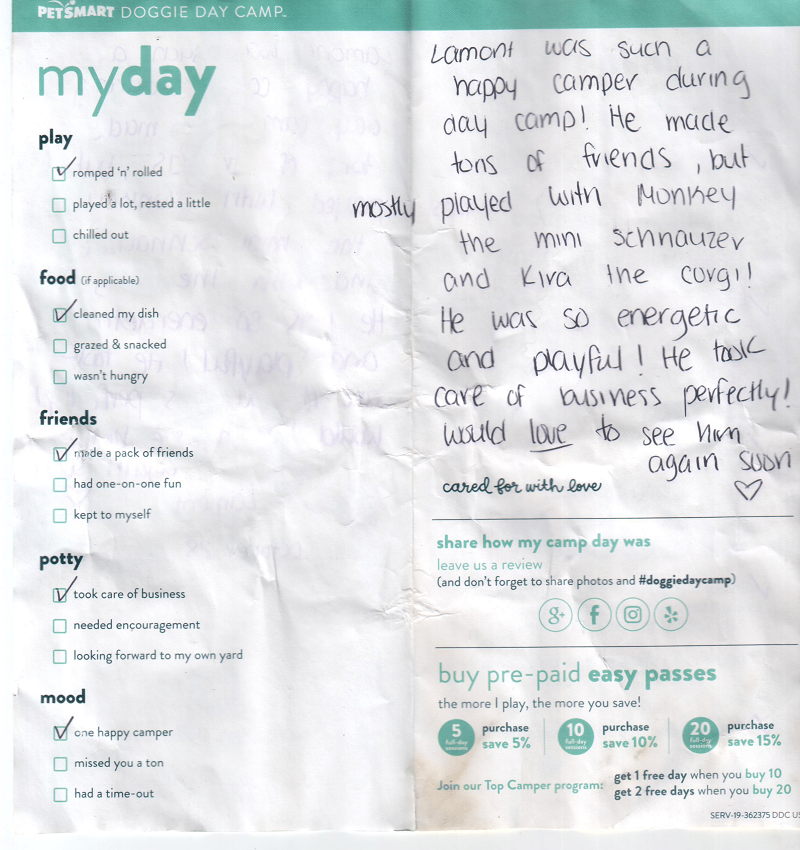 PETSMART DOGGIE DAY CAMP™
myday
play
romped 'n' rolled
played a lot, rested a little
chilled out
food (if applicable)
cleaned my dish
grazed & snacked
wasn't hungry
friends
made a pack of friends
had one-on-one fun
kept to myself
potty
took care of business
needed encouragement
looking forward to my own yard
mood
one happy camper
missed you a ton
had a time-out
Lamont was such a
happy camper during
day camp! He made
tons of friends, but
mostly played with Monkey
the mini schnauzer
and Kira the corgi!
He was so energetic
and playful! He took
care of business perfectly!
would love to see him
again soon
cared for with love
share how my camp day was
leave us a review
(and don't forget to share photos and #doggiedaycamp)
g+ f
buy pre-paid easy passes
the more I play, the more you save!
5 full-day sessions purchase save 5%
10 full-day sessions purchase save 10%
20 full-day sessions purchase save 15%
Join our Top Camper program:
get 1 free day when you buy 10
get 2 free days when you buy 20
SERV-19-362375 DDC US